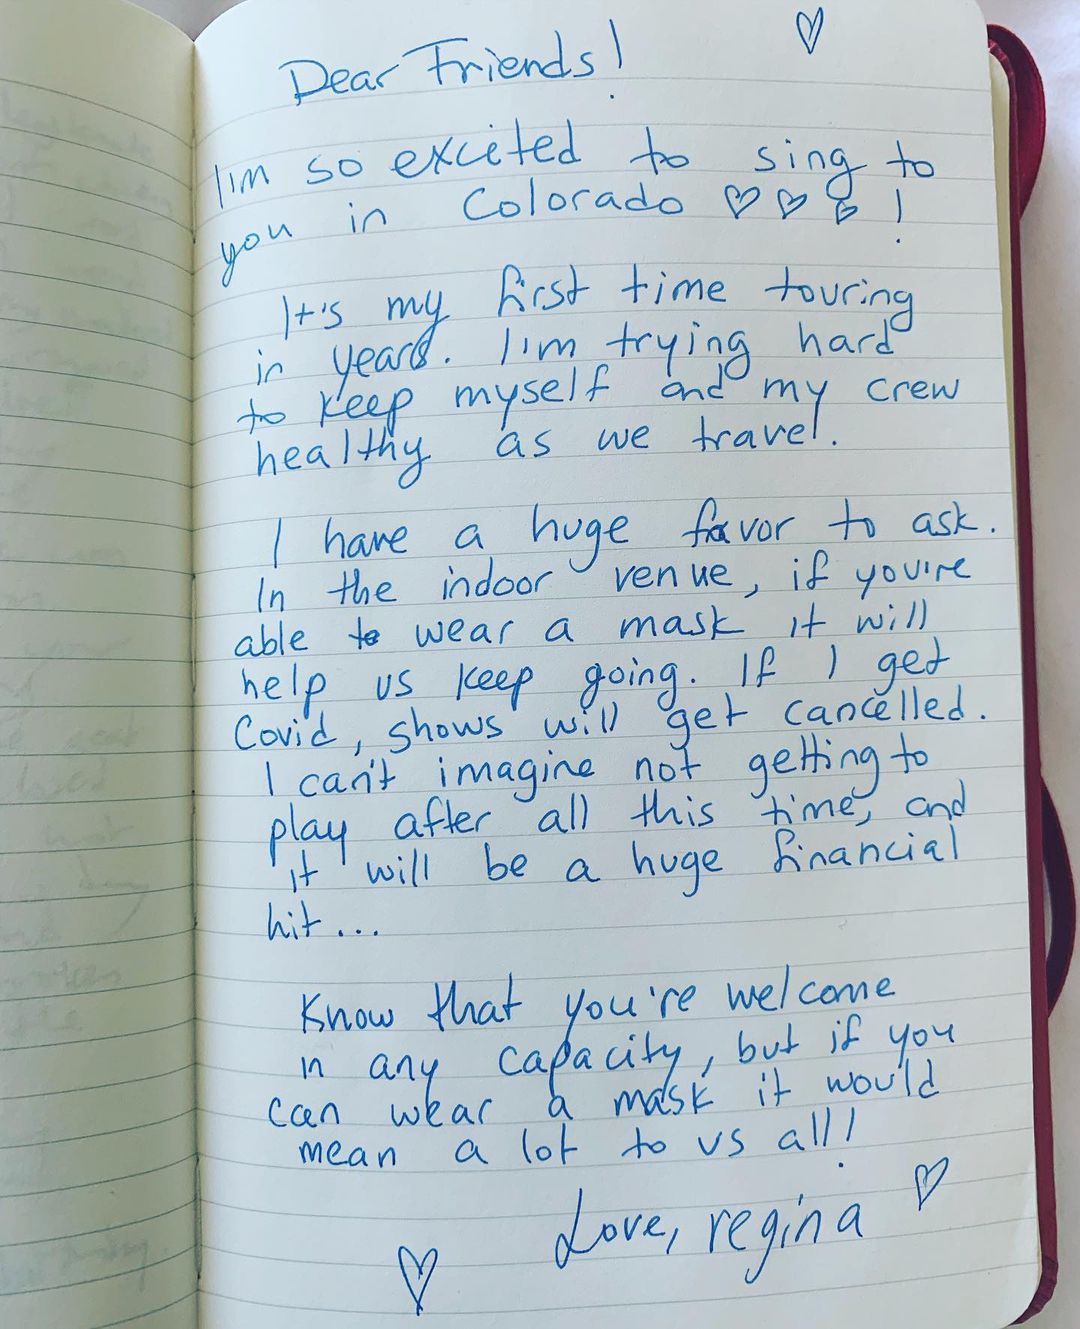 Dear Friends! ♡
I'm so excited to sing to
you in Colorado ♡ ♡ ♡ !
It's my first time touring
in years. I'm trying hard
to keep myself and my crew
healthy as we travel.
I have a huge favor to ask.
In the indoor venue, if you're
able to wear a mask it will
help us keep going. If I get
Covid, shows will get cancelled.
I can't imagine not getting to
play after all this time, and
it will be a huge financial
hit...
Know that you're welcome
in any capacity, but if you
can wear a mask it would
mean a lot to us all!
Love, regina ♡
♡